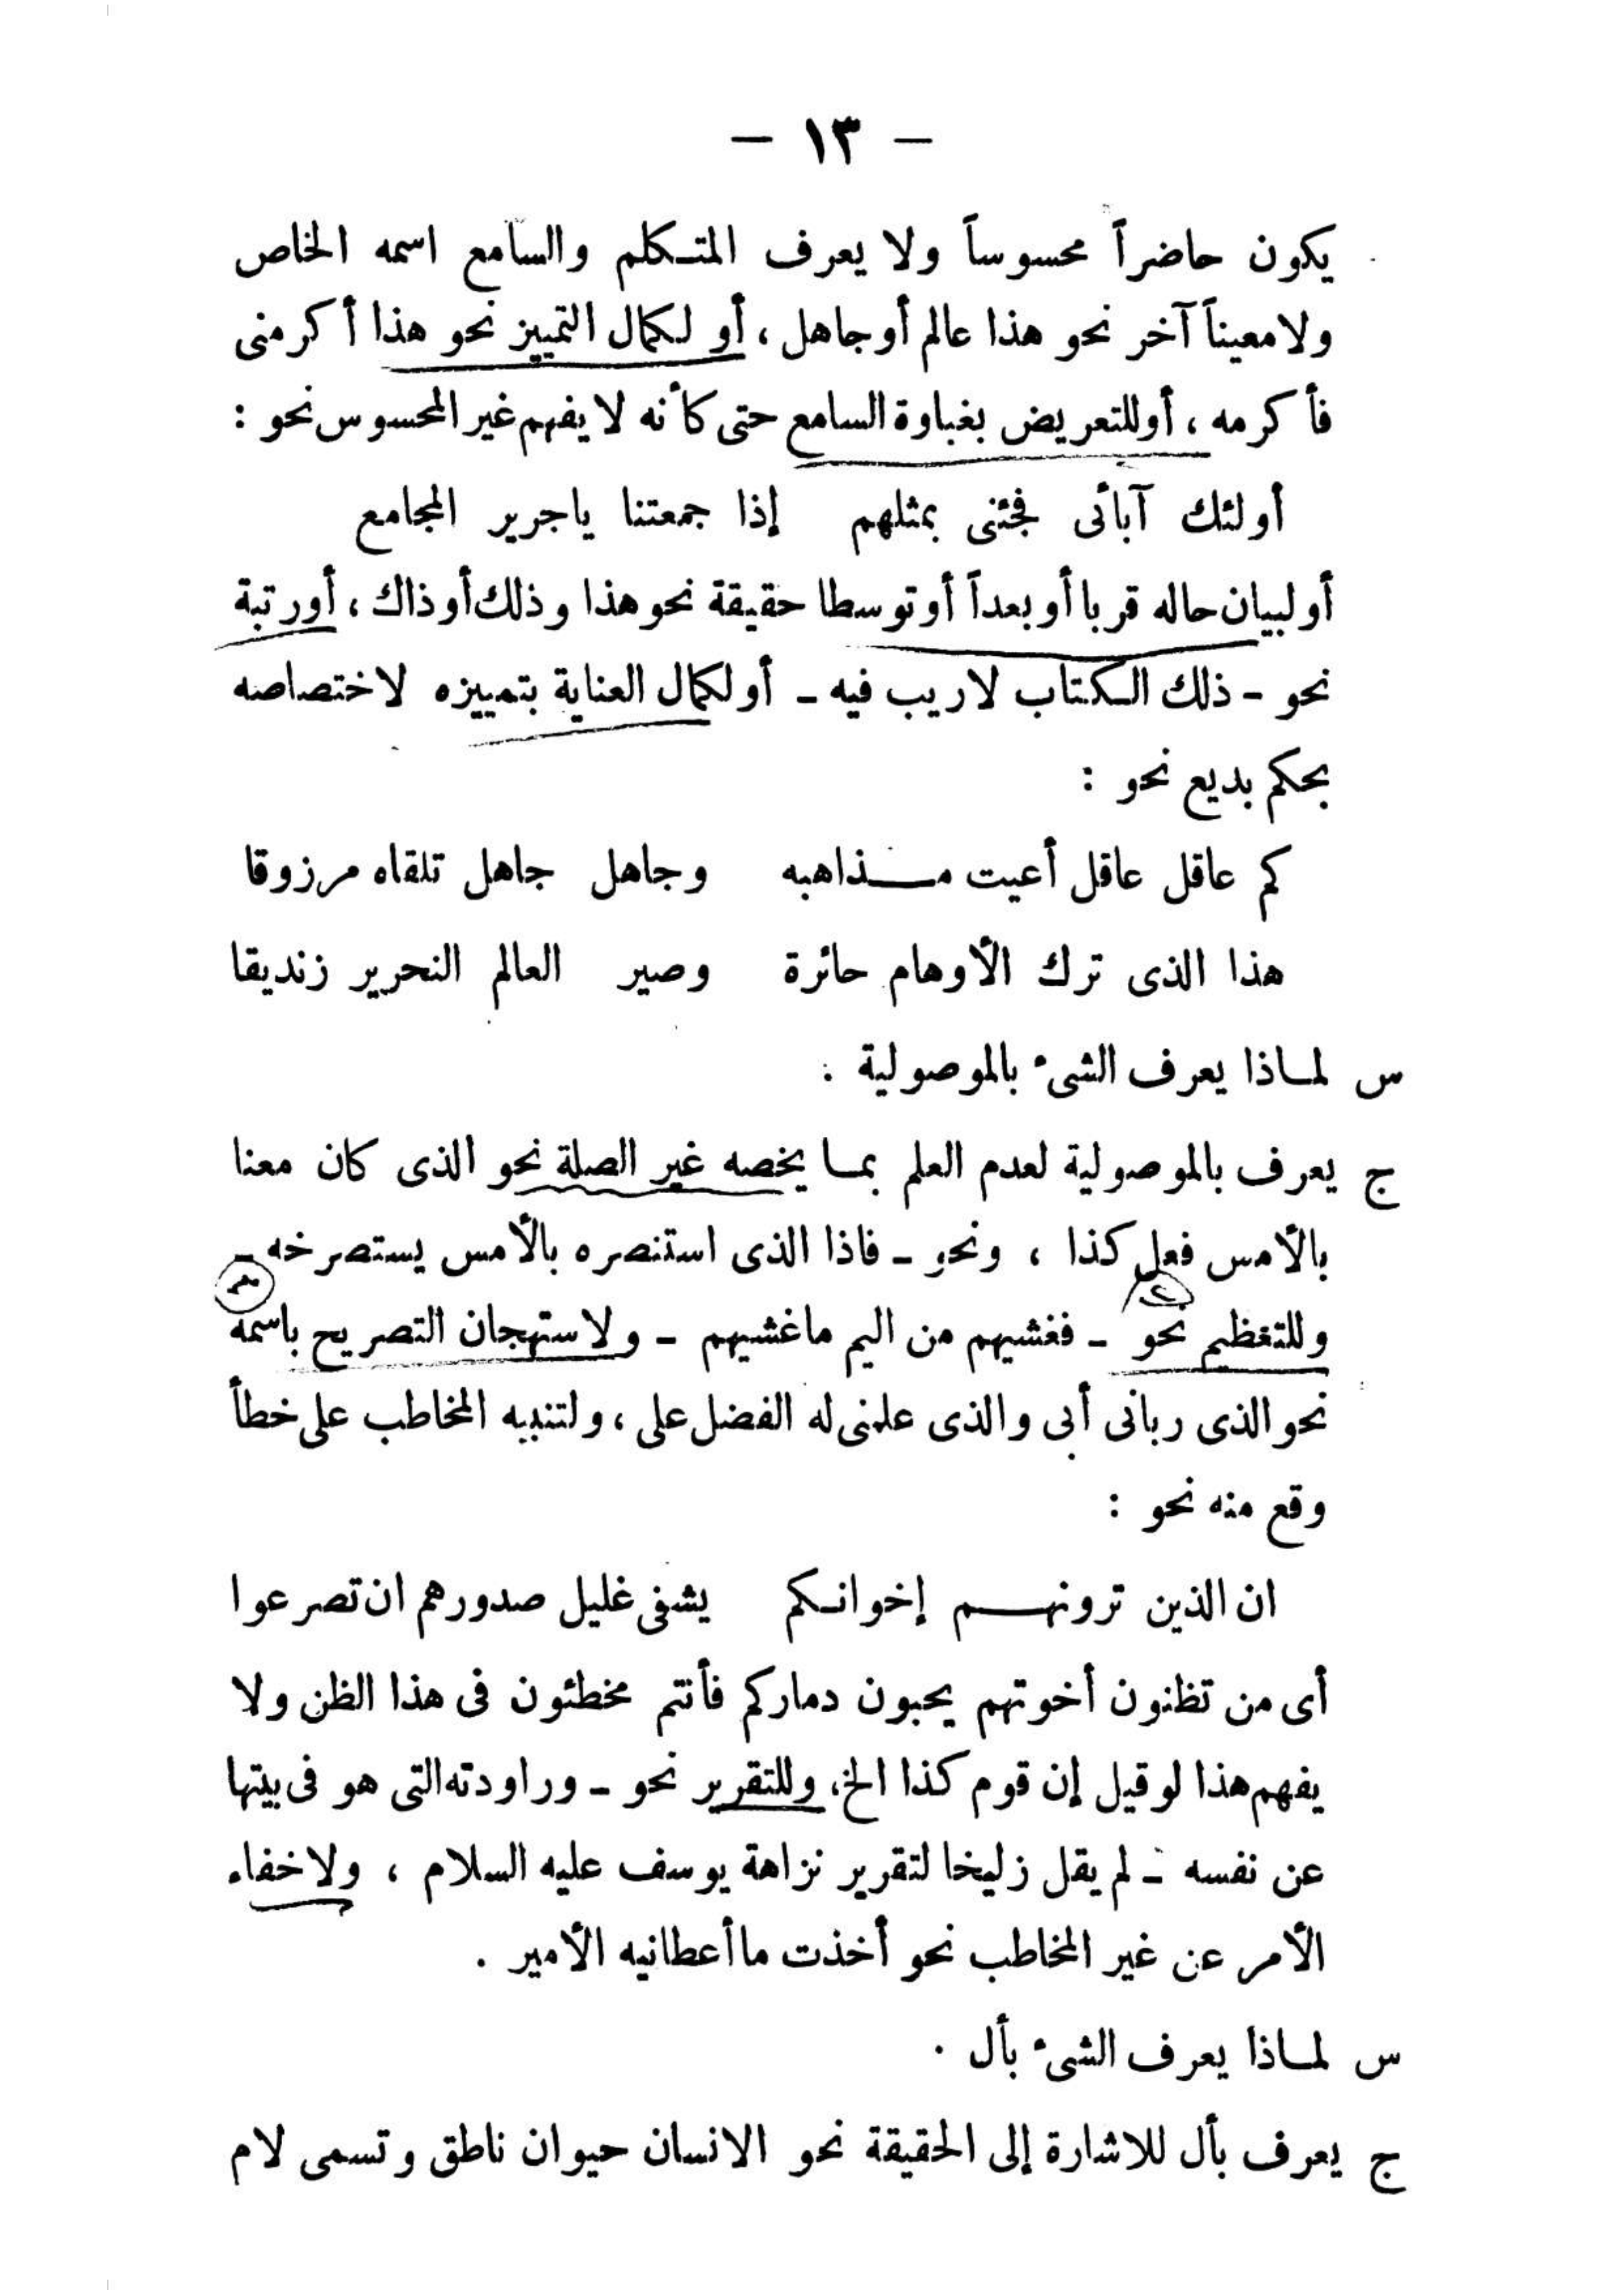 — ١٣ —
يكون حاضراً محسوساً ولا يعرف المتكلم والسامع اسمه الخاص
ولامعيناً آخر نحو هذا عالم أوجاهل ، أو لكمال التمييز نحو هذا أكرمنى
فأكرمه ، أوللتعريض بغباوة السامع حتى كأنه لا يفهم غير المحسوس نحو :
أولئك آبائى فجئنى بمثلهم إذا جمعتنا ياجرير المجامع
أولبيان حاله قربا أوبعداً أوتوسطا حقيقة نحوهذا وذلك أوذاك ، أورتبة
نحو - ذلك الكتاب لاريب فيه - أولكمال العناية بتمييزه لاختصاصه
بحكم بديع نحو :
كم عاقل عاقل أعيت مذاهبه وجاهل جاهل تلقاه مرزوقا
هذا الذى ترك الأوهام حائرة وصير العالم النحرير زنديقا
س لماذا يعرف الشىء بالموصولية .
ج يعرف بالموصولية لعدم العلم بما يخصه غير الصلة نحو الذى كان معنا
بالأمس فعل كذا ، ونحو - فاذا الذى استنصره بالأمس يستصرخه -
وللتعظيم نحو - فغشيهم من اليم ماغشيهم - ولاستهجان التصريح باسمه
نحو الذى ربانى أبى والذى علمنى له الفضل على ، ولتنبيه المخاطب على خطأ
وقع منه نحو :
ان الذين ترونهم إخوانكم يشفى غليل صدورهم ان تصرعوا
أى من تظنون أخوتهم يحبون دماركم فأنتم مخطئون فى هذا الظن ولا
يفهم هذا لوقيل إن قوم كذا الخ، وللتقرير نحو - وراودته التى هو فى بيتها
عن نفسه - لم يقل زليخا لتقرير نزاهة يوسف عليه السلام ، ولاخفاء
الأمر عن غير المخاطب نحو أخذت ماأعطانيه الأمير .
س لماذا يعرف الشىء بأل .
ج يعرف بأل للاشارة إلى الحقيقة نحو الانسان حيوان ناطق وتسمى لام